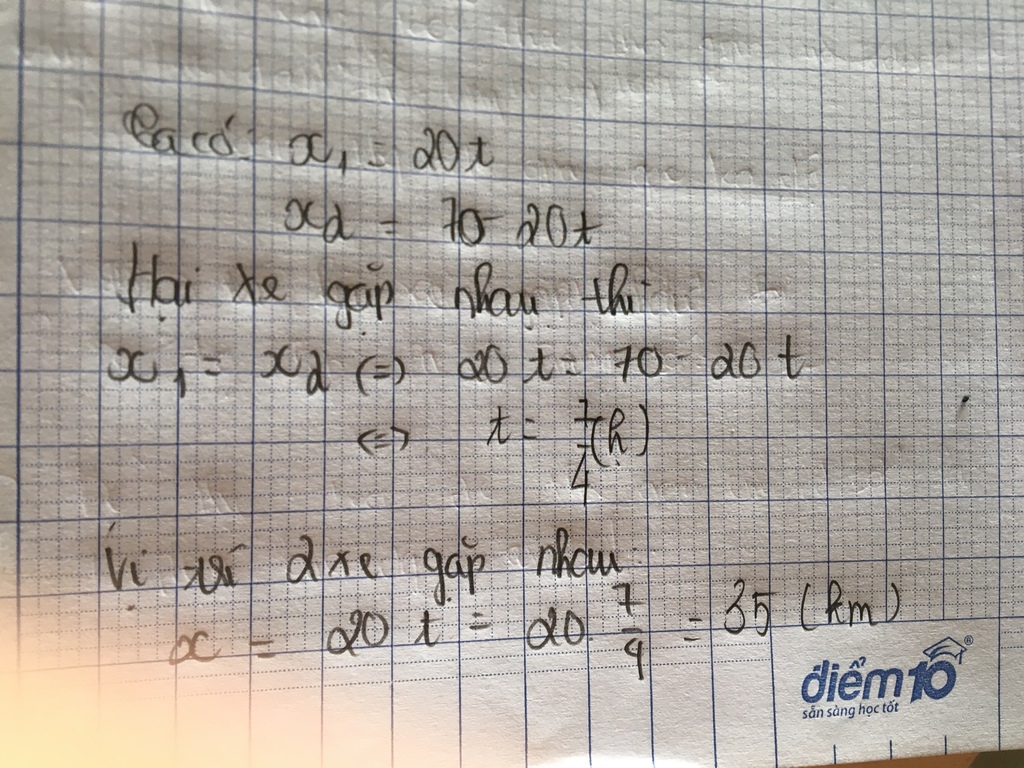 Ta có: x₁ = 20t
x₂ = 70-20t
Hai xe gặp nhau thì
x₁ = x₂ (=) 20t = 70 - 20t
(=) t = 7/4 (h)
Vị trí 2 xe gặp nhau:
x = 20t = 20. 7/4 = 35 (km)
điểm10®
sẵn sàng học tốt